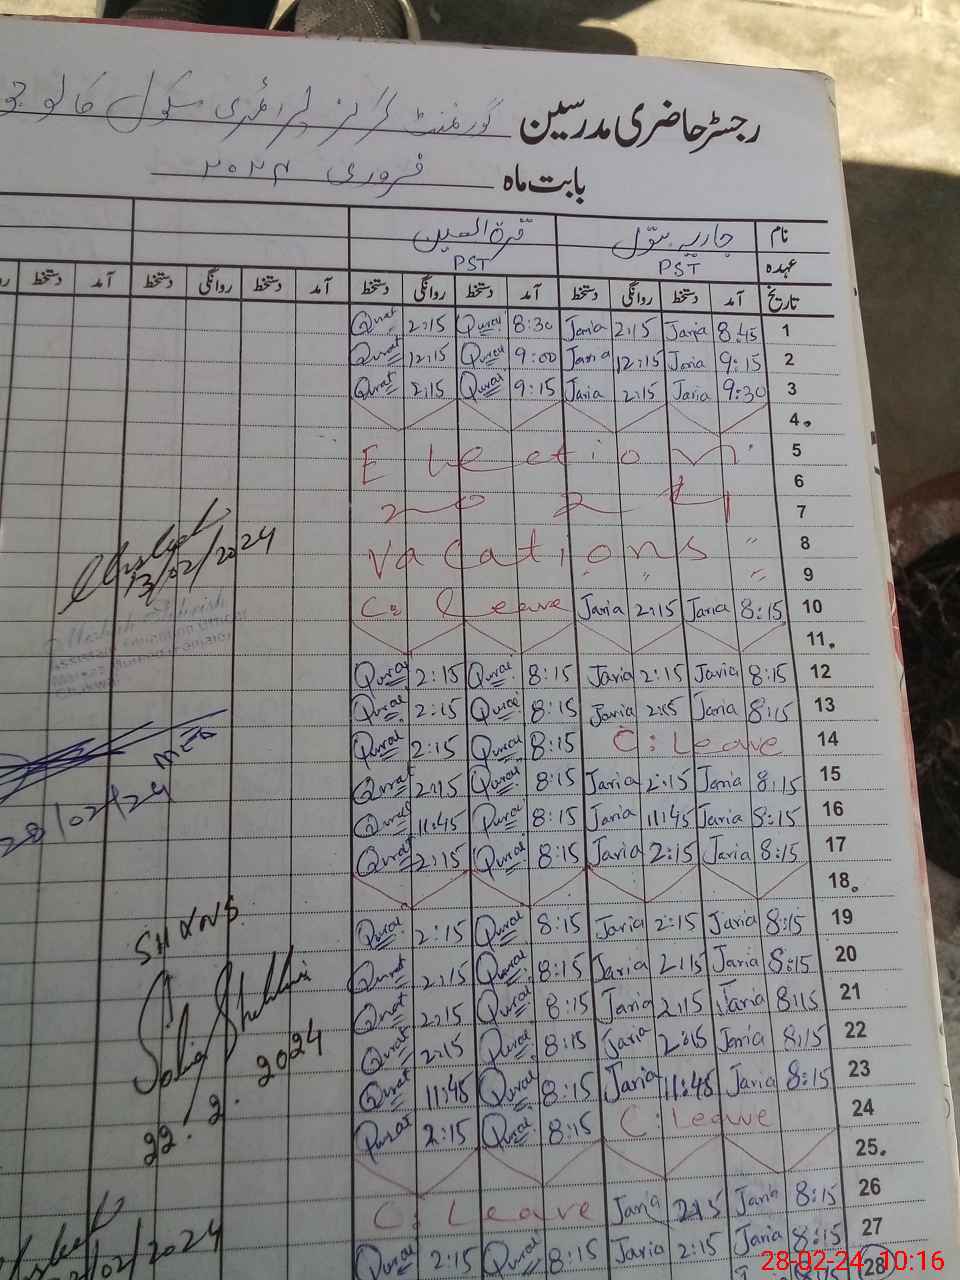 رجسٹر حاضری مدرسین گورنمنٹ گرلز پرائمری سکول کالو
بابت ماہ فروری ۲۰۲۴
نام جاریہ بتول قرۃ العین
عہدہ PST PST
تاریخ آمد دستخط روانگی دستخط آمد دستخط روانگی دستخط آمد دستخط روانگی دستخط آمد دستخط
1 8:45 Jaria 2:15 Jaria 8:30 Qurat 2:15 Qurat
2 9:15 Jaria 12:15 Jaria 9:00 Qurat 12:15 Qurat
3 9:30 Jaria 2:15 Jaria 9:15 Qurat 2:15 Qurat
4.
5 Election
6
7 2024
8 Vacations "
9 " "
10 8:15 Jaria 2:15 Jaria C: Leave
11.
12 8:15 Jaria 2:15 Jaria 8:15 Qurat 2:15 Qurat
13 8:15 Jaria 2:15 Jaria 8:15 Qurat 2:15 Qurat
14 C: Leave 8:15 Qurat 2:15 Qurat
15 8:15 Jaria 2:15 Jaria 8:15 Qurat 2:15 Qurat
16 8:15 Jaria 11:45 Jaria 8:15 Qurat 11:45 Qurat
17 8:15 Jaria 2:15 Jaria 8:15 Qurat 2:15 Qurat
18.
19 8:15 Jaria 2:15 Jaria 8:15 Qurat 2:15 Qurat
20 8:15 Jaria 2:15 Jaria 8:15 Qurat 2:15 Qurat
21 8:15 Jaria 2:15 Jaria 8:15 Qurat 2:15 Qurat
22 8:15 Jaria 2:15 Jaria 8:15 Qurat 2:15 Qurat
23 8:15 Jaria 11:45 Jaria 8:15 Qurat 11:45 Qurat
24 C: Leave 8:15 Qurat 2:15 Qurat
25.
26 8:15 Jaria 2:15 Jaria C: Leave
27 8:15 Jaria 2:15 Jaria 8:15 Qurat 2:15 Qurat
28 8:15
13/02/2024
Assistant Education Officer
MEA
28/02/24
22.2.2024
02/2024
28-02-24 10:16